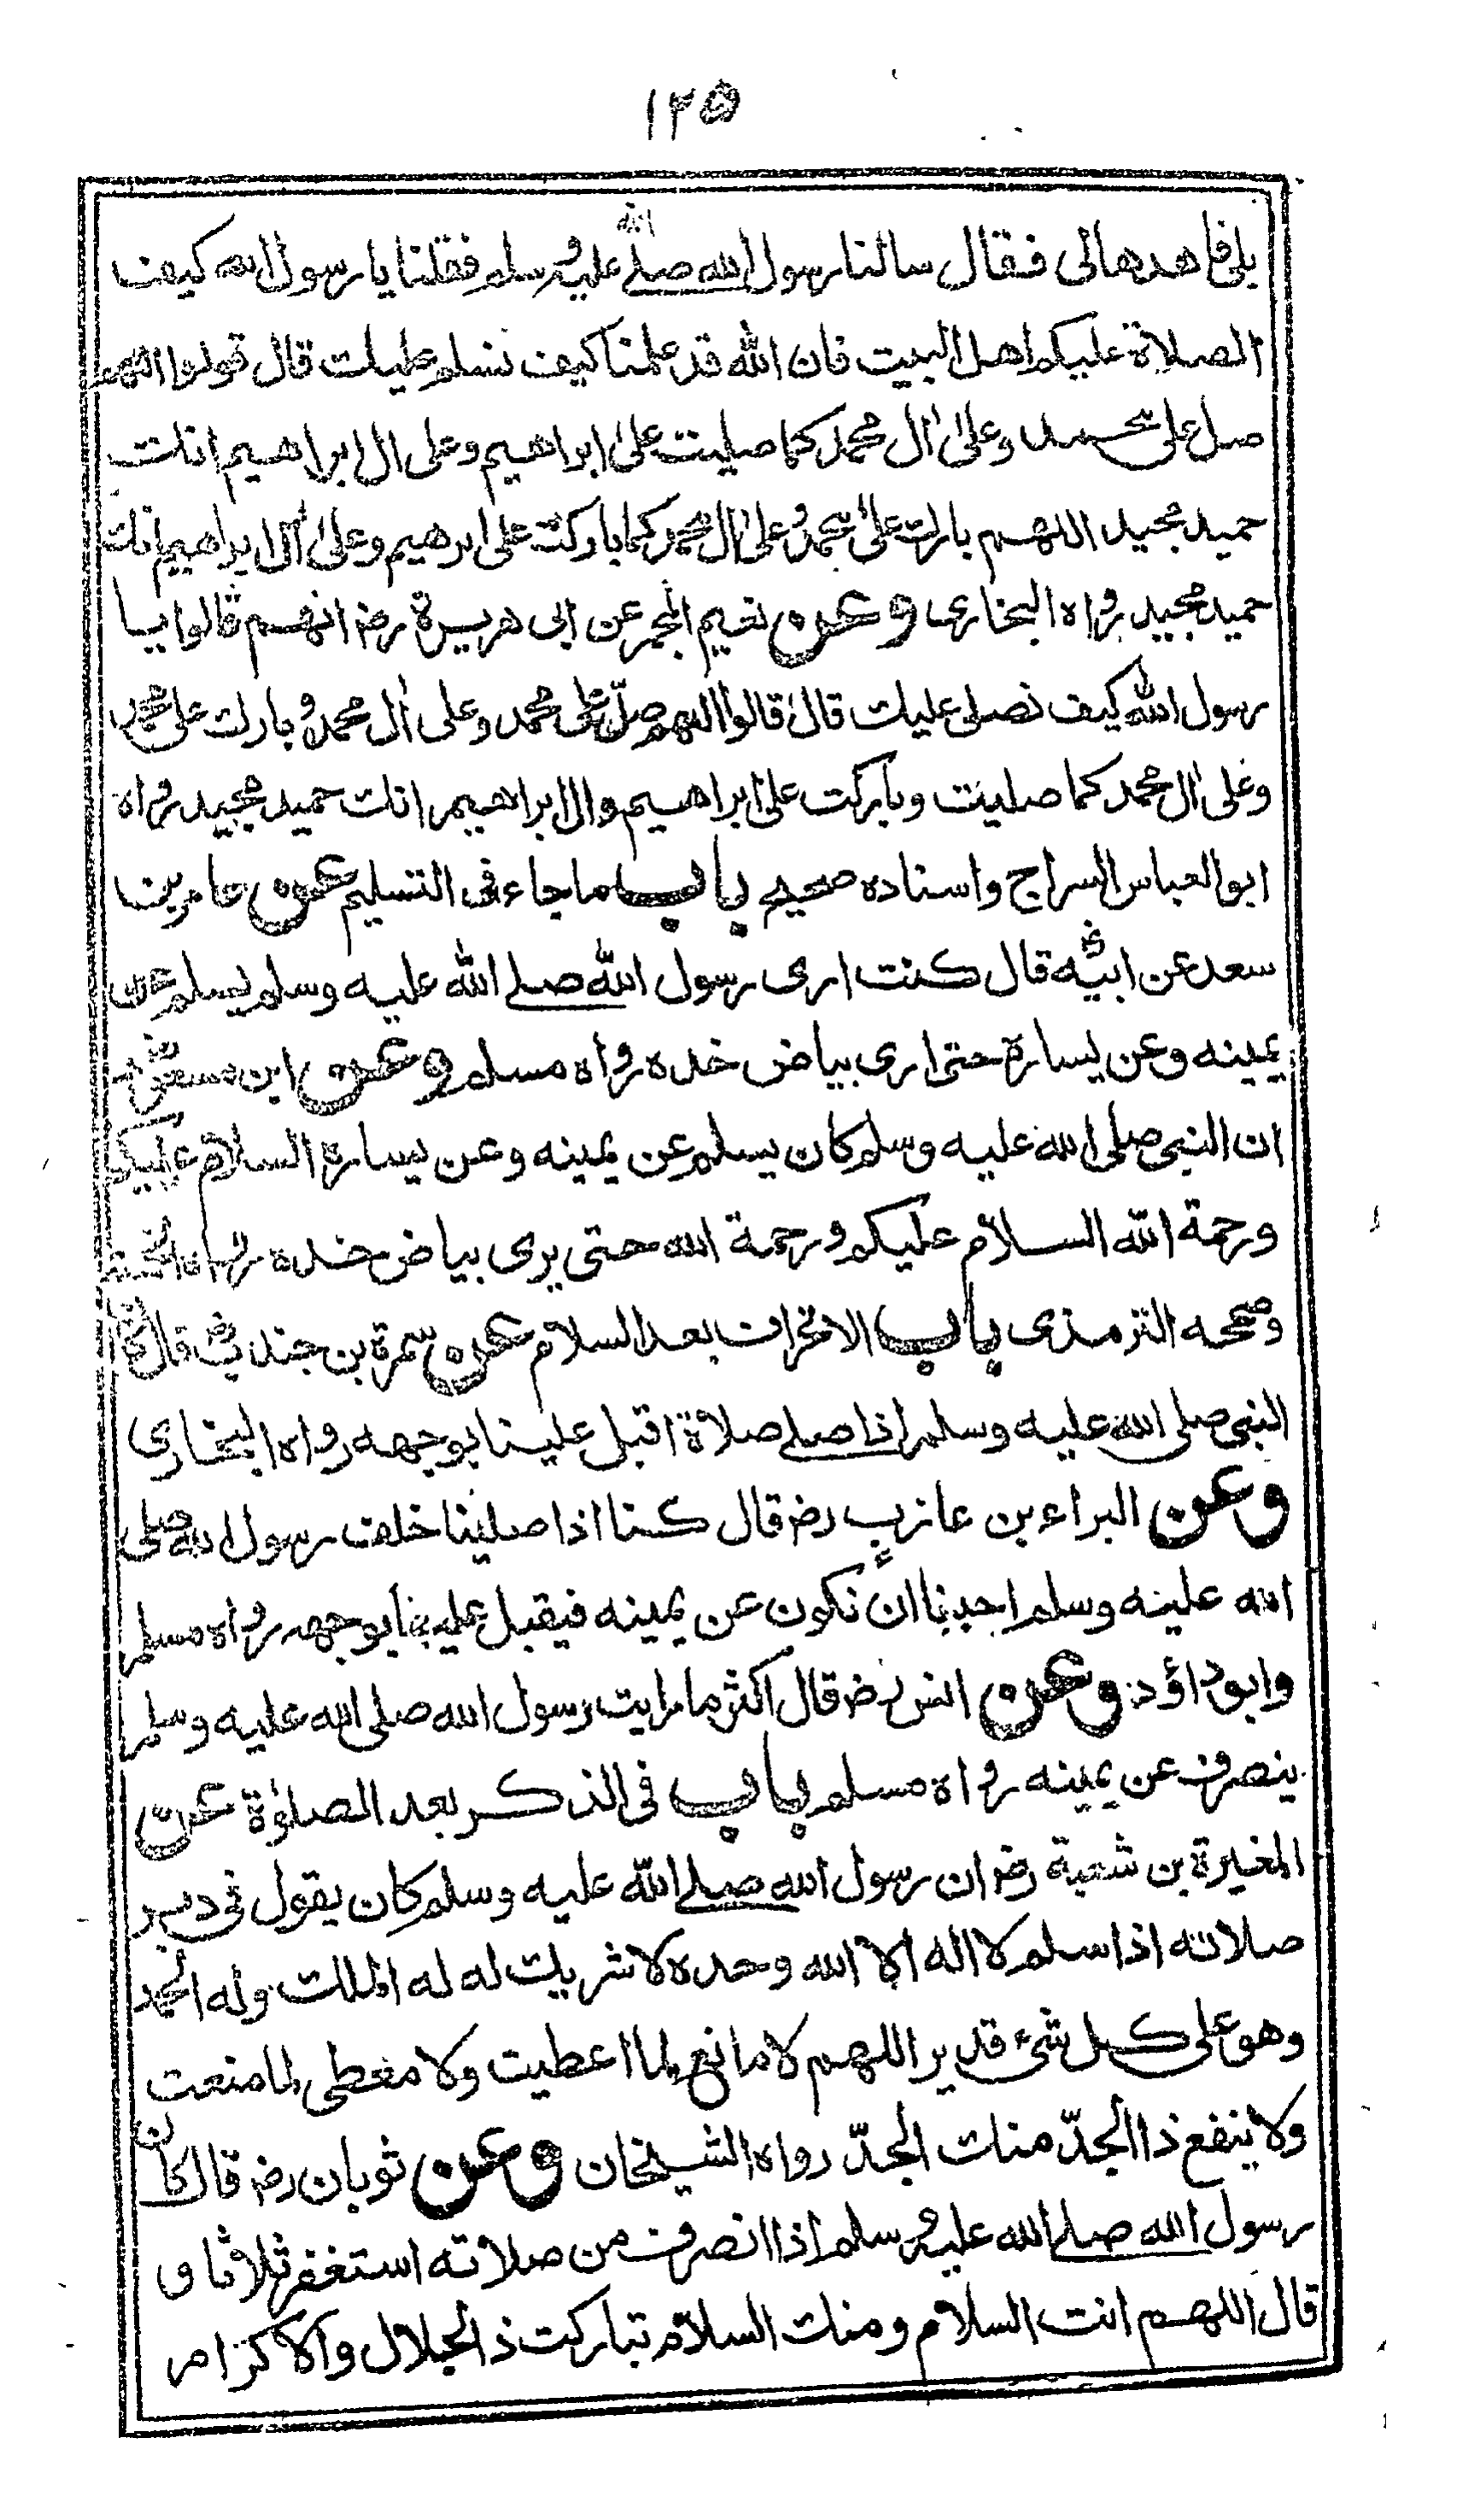 ١٢٥
بلى فاهدها لى فقال سالنا رسول الله صلے الله عليه وسلم فقلنا يا رسول الله كيف
الصلاة عليكم اهل البيت فان الله قد علمنا كيف نسلم عليك قال قولوا اللهم
صل على محمد وعلىٰ اٰل محمد كما صليت علىٰ ابراهيم وعلى اٰل ابراهيم انك
حميد مجيد اللهم بارك علىٰ محمد وعلىٰ اٰل محمد كما بارکت على ابرهيم وعلىٰ اٰل ابراهيم انك
حميد مجيد رواه البخارى وعن نعيم المجمر عن ابى هريرة رضـ انهم قالوا يا
رسول الله كيف نصلى عليك قال قالوا اللهم صلّ على محمد وعلى اٰل محمد وبارك على محمد
وعلى اٰل محمد كما صليت وباركت على ابراهيم واٰل ابراهيم انك حميد مجيد رواه
ابو العباس السراج واسناده صحيح باب ما جاء فى التسليم عن عامر بن
سعد عن ابيه رضـ قال كنت ارى رسول الله صلے الله عليه وسلم يسلم عن
يمينه وعن يساره حتى ارى بياض خده رواه مسلم وعن ابن مسعود رضـ
ان النبى صلى الله عليه وسلم كان يسلم عن يمينه وعن يساره السلام عليكم
ورحمة الله السلام عليكم ورحمة الله حتى يرى بياض خده رواه الخمسة
وصححه الترمذى باب الانحراف بعد السلام عن سمرة بن جندب رضـ قال كان
النبى صلى الله عليه وسلم اذا صلے صلاة اقبل علينا بوجهه رواه البخارى
وعن البراء بن عازب رضـ قال كنا اذا صلينا خلف رسول الله صلى
الله عليه وسلم احببنا ان نكون عن يمينه فيقبل علينا بوجهه رواه مسلم
وابو داؤد وعن انس رضـ قال اكثر ما رايت رسول الله صلى الله عليه وسلم
ينصرف عن يمينه رواه مسلم باب فى الذكر بعد الصلوٰة عن
المغيرة بن شعبة رضـ ان رسول الله صلے الله عليه وسلم كان يقول فى دبر
صلاته اذا سلم لا اله الا الله وحده لا شريك له له الملك وله الحمد
وهو على كل شئ قدير اللهم لا مانع لما اعطيت ولا معطى لما منعت
ولا ينفع ذا الجدّ منك الجدّ رواه الشيخان وعن ثوبان رضـ قال كان
رسول الله صلے الله عليه وسلم اذا انصرف من صلاته استغفر ثلاثا و
قال اللهم انت السلام ومنك السلام تباركت ذا الجلال والاكرام